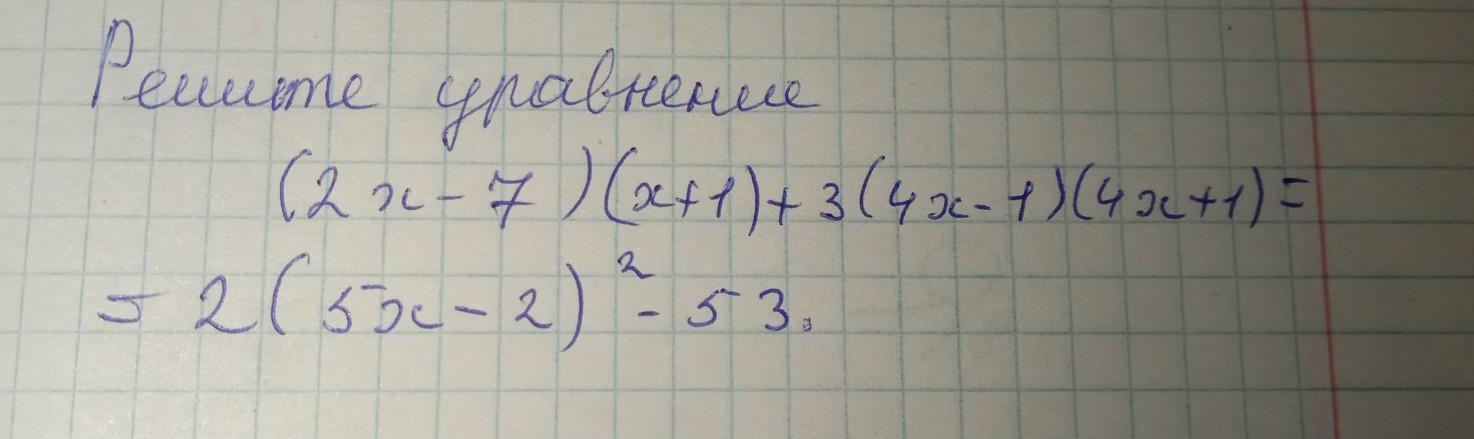 Решите уравнение
(2x-7)(x+1)+3(4x-1)(4x+1)=
= 2(5x-2)²-53.